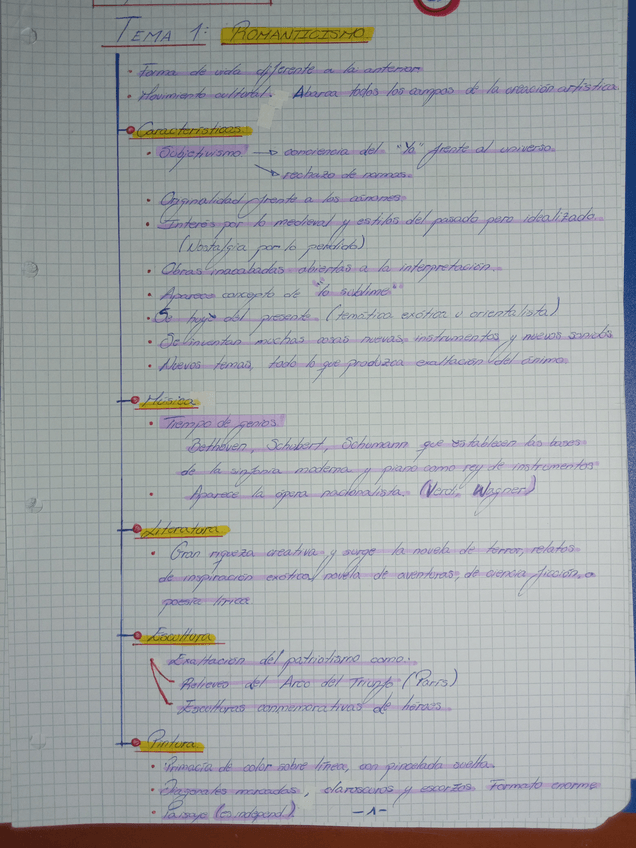 TEMA 1: ROMANTICISMO
• Forma de vida diferente a la anterior
• Movimiento cultural. Abarca todos los campos de la creación artística
Características
• Subjetivismo → conciencia del "Yo" frente al universo.
→ rechazo de normas.
• Originalidad frente a los cánones
• Interés por lo medieval y estilos del pasado pero idealizado.
(Nostalgia por lo perdido)
• Obras inacabadas abiertas a la interpretación.
• Aparece concepto de "lo sublime"
• Se huye del presente (temática exótica u orientalista)
• Se inventan muchas cosas nuevas, instrumentos y nuevos sonidos
• Nuevos temas, todo lo que produzca exaltación del ánimo.
Música
• Tiempo de genios
Bethoven, Schubert, Schumann que establecen las bases
de la sinfonía moderna y piano como rey de instrumentos
• Aparece la ópera nacionalista. (Verdi, Wagner)
Literatura
• Gran riqueza creativa y surge la novela de terror, relatos
de inspiración exótica, novela de aventuras, de ciencia ficción, o
poesía lírica
Escultura
Exaltación del patriotismo como:
Relieves del Arco del Triunfo (París)
Esculturas conmemorativas de héroes.
Pintura
• Primacía de color sobre línea, con pincelada suelta.
• Diagonales marcadas, claroscuros y escorzos. Formato enorme
• Paisaje (es independ).
-1-